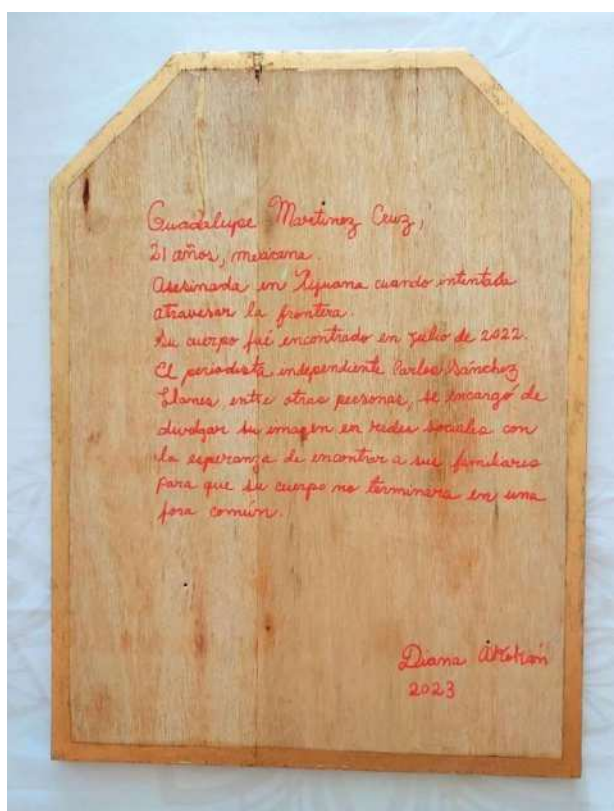 Guadalupe Martinez Cruz,
21 años, mexicana.
Asesinada en Tijuana cuando intentaba
atravesar la frontera.
Su cuerpo fué encontrado en julio de 2022.
El periodista independiente Carlos Sánchez
Llanes, entre otras personas, se encargó de
divulgar su imagen en redes sociales con
la esperanza de encontrar a sus familiares
para que su cuerpo no terminara en una
fosa común.
Diana
2023